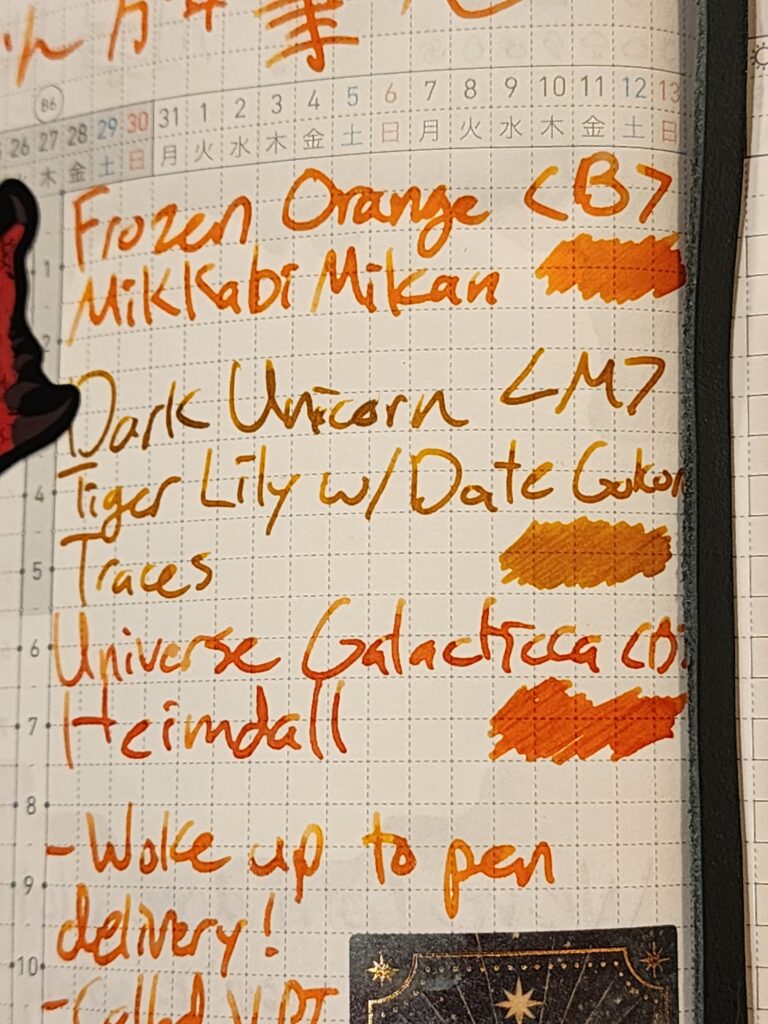 万年筆
B6
26 27 28 29 30 31 1 2 3 4 5 6 7 8 9 10 11 12 13
木 金 土 日 月 火 水 木 金 土 日 月 火 水 木 金 土 日
Frozen Orange <B>
1
Mikkabi Mikan
2
Dark Unicorn <M>
4
Tiger Lily w/Date Gokon
5
Traces
6
Universe Galacticca <B>
7
Heimdall
8
-Woke up to pen
9
delivery!
10
-Called